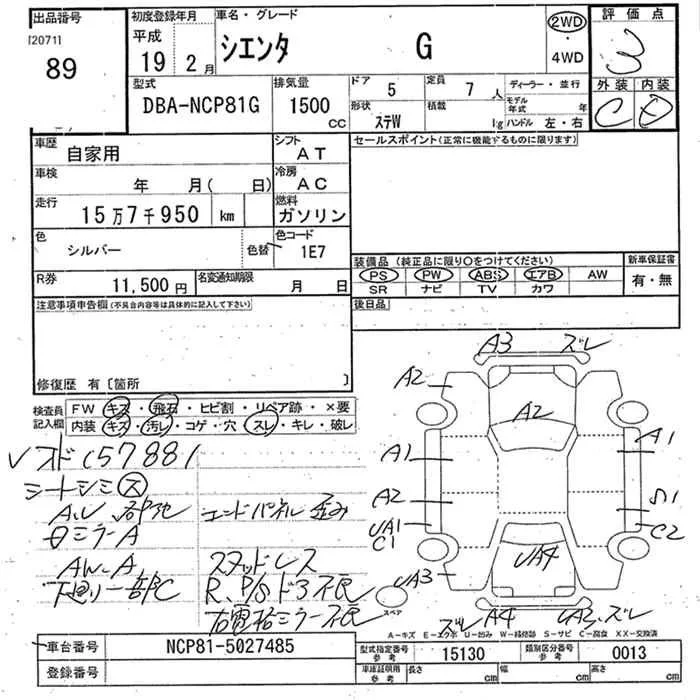 出品番号
120711
89
初度登録年月
平成
19 2月
車名・グレード
シエンタ G
2WD
・
4WD
評価点
3
外装 内装
C D
型式
DBA-NCP81G
排気量
1500 CC
ドア 5
定員 7人
形状 ステW
積載 kg
ディーラー・並行
モデル年式 年
ハンドル 左・右
車歴 自家用
シフト AT
セールスポイント(正常に機能するものに限ります)
車検 年 月( 日)
冷房 AC
走行 15万7千950 km
燃料 ガソリン
色 シルバー 色替
色コード 1E7
装備品(純正品に限り○をつけてください)
新車保証書
PS PW ABS エアB AW
SR ナビ TV カワ
有・無
R券 11,500円
名変通知期限 月 日
注意事項申告欄(不具合内容等は具体的に記入して下さい)
後日品
修復歴 有〔箇所 〕
検査員記入欄
FW キズ・飛石・ヒビ割・リペア跡・×要
内装 キズ・汚レ・コゲ・穴・スレ・キレ・破レ
A3 ズレ
A2
A2
A1 A1
A2
UA1 C1
C2
UA3 UA4
スペア
ズレ A4 UA2、ズレ
オド(157881
シートシミ ス
A、U、各部他 エンドパネル 歪み
ミラーA
AW、A スタッドレス
下廻り一部C
右電格ミラー不良
A-キズ E-エクボ U-凹み W-補修跡 S-サビ C-腐食 XX-交換済
車台番号 NCP81-5027485
型式指定番号 参考 15130
類別区分番号 参考 0013
登録番号
車庫証明用 参考 長さ cm 幅 cm 高さ cm